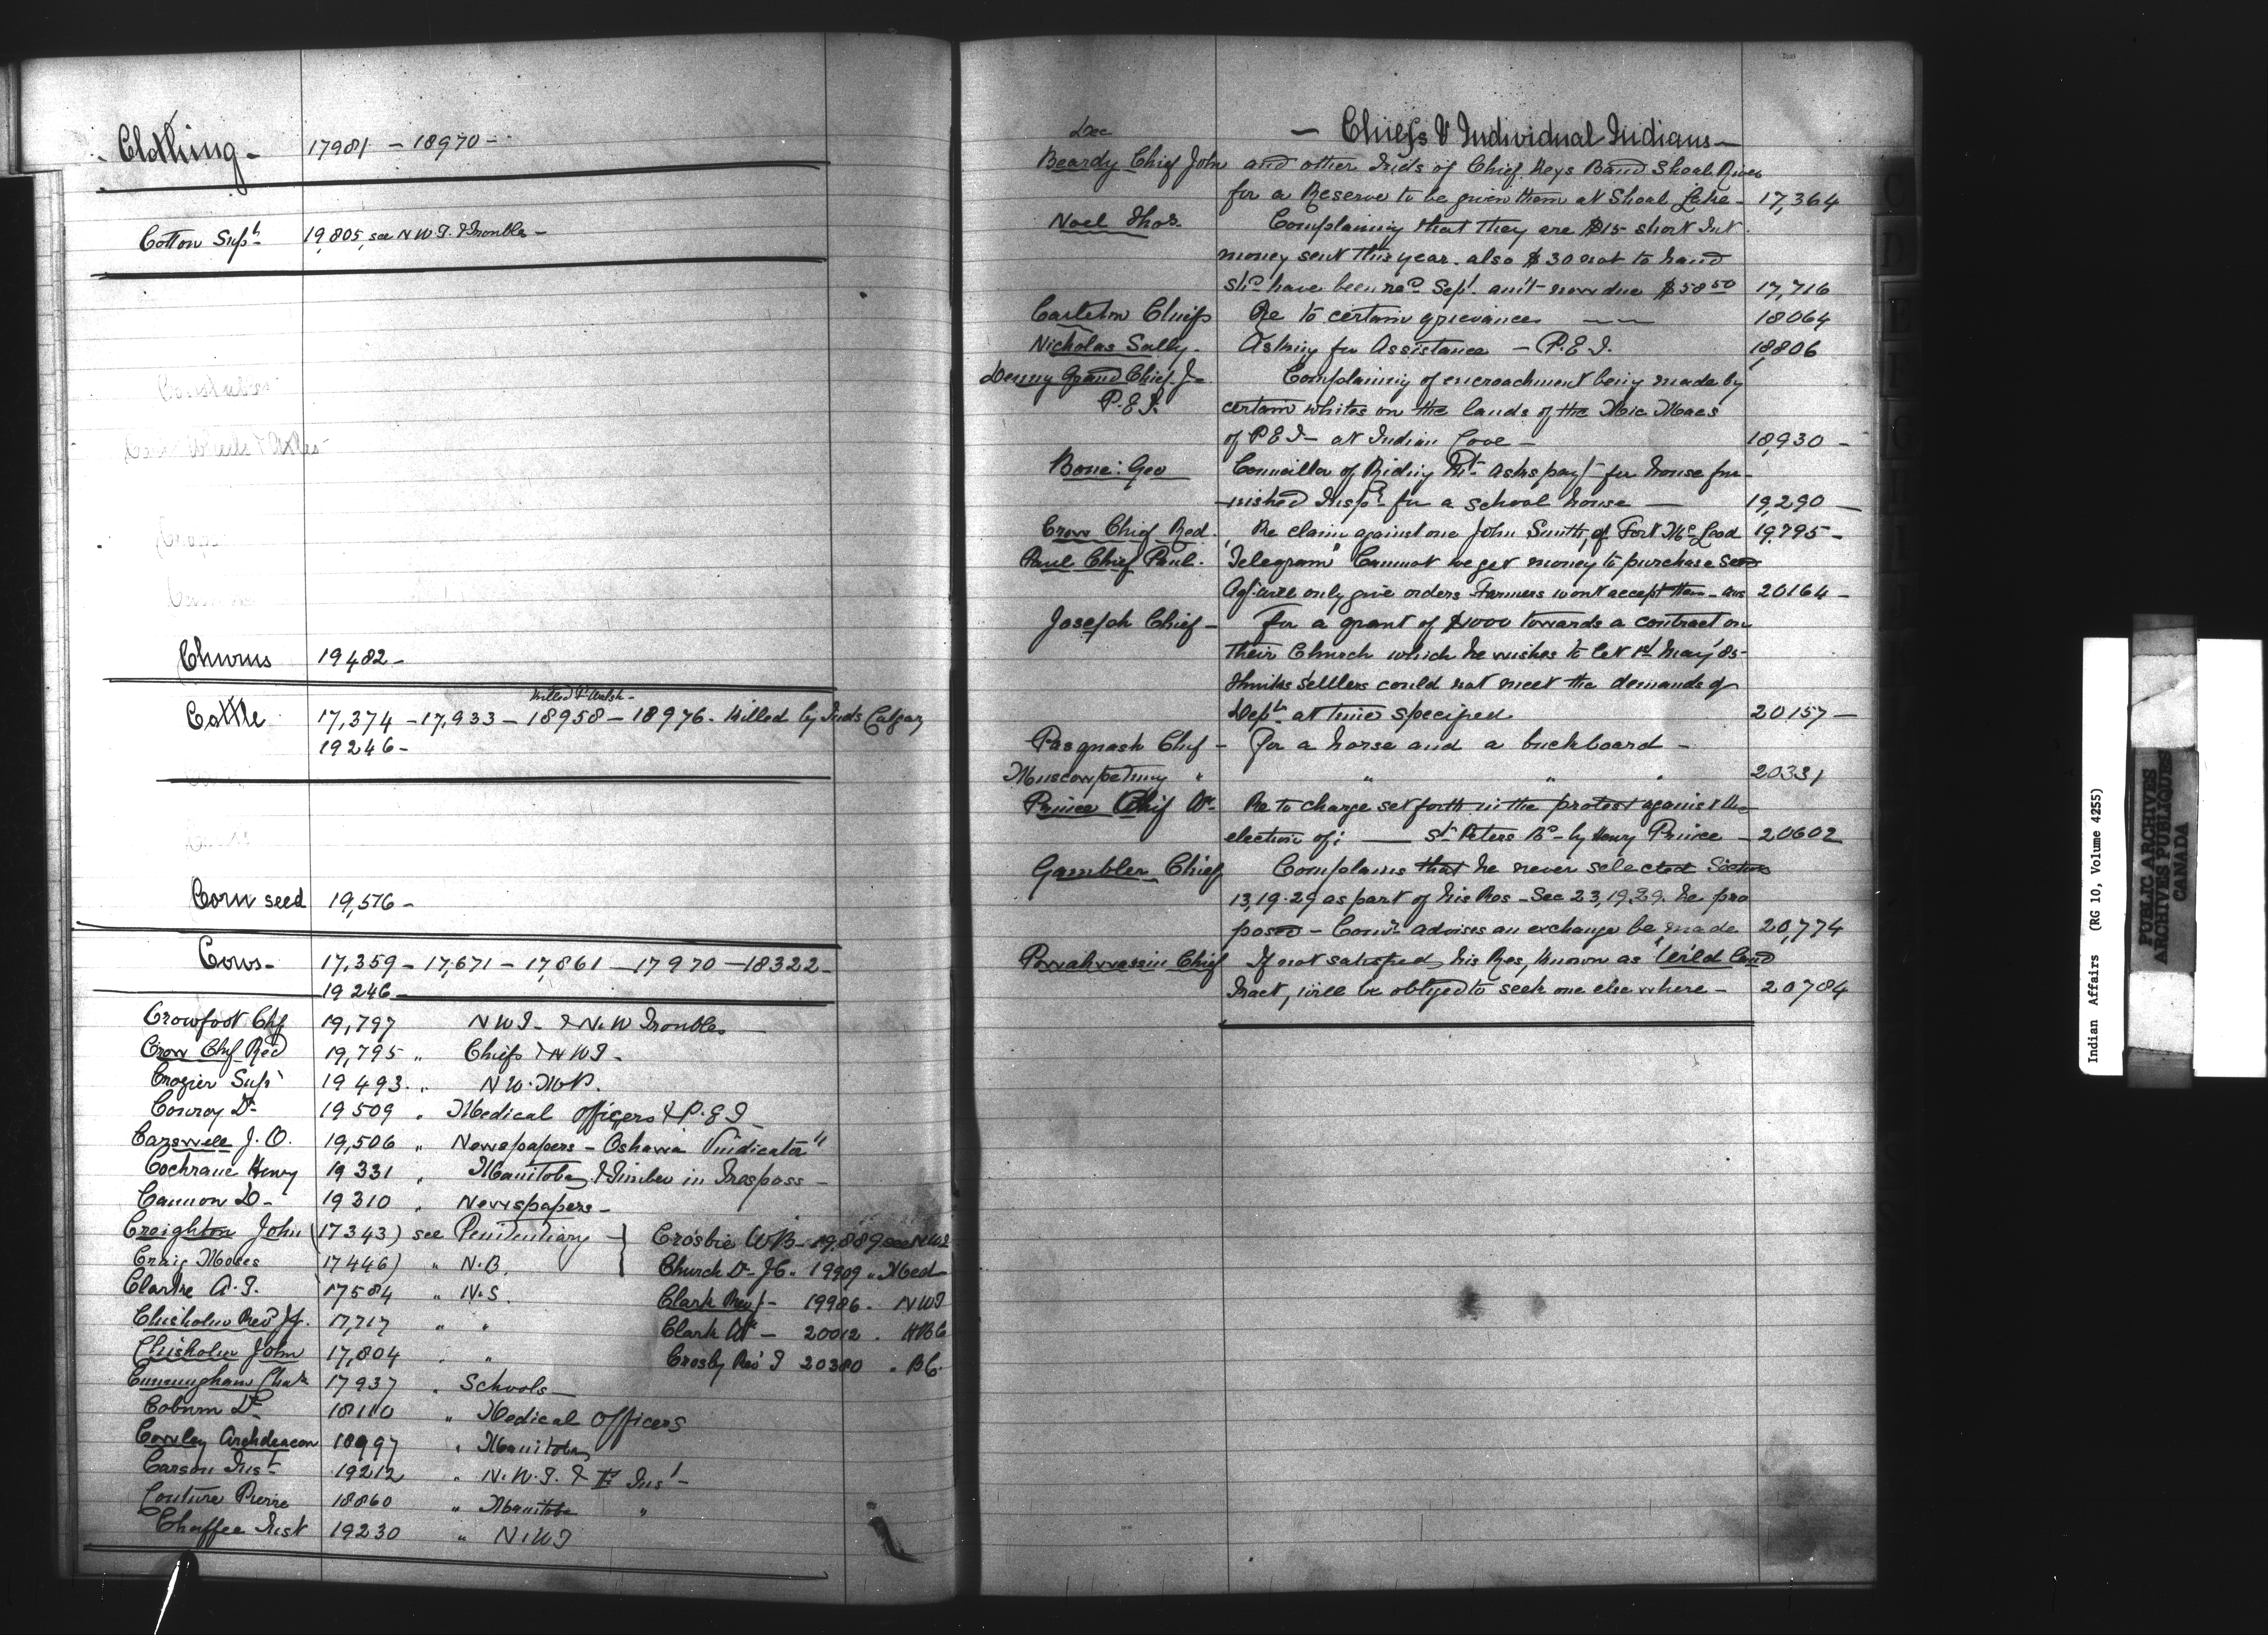 Clothing - 17981 - 18970 -
Cotton Supt 19,805, see N W T. & Troubles -
Churns 19482 -
Killed F. Walsh -
Cattle 17,374 - 17,933 - 18958 - 18976 - Killed by Inds Calgary
19246 -
Corn seed 19,576 -
Cows - 17,359 - 17,671 - 17,861 - 17970 - 18322 -
19246 -
Crowfoot Chf 19,797 NWT - & N.W Troubles -
Crow Chf Red 19,795 " Chiefs & NWT -
Crozier Supt 19493 . " N W. M P.
Conroy Dr 19509 " Medical Officers & P. E I -
Carswell J. O. 19,506 " Newspapers - Oshawa Vindicator "
Cochrane Henry 19331 " Manitoba & Timber in Trespass -
Cannon D - 19310 " Newspapers -
Creighton John (17343) see Penitentiary - } Crosbie WB - 19,889 see NWT
Craig Moses 17446) " N.B. Church Dr JC " 19909 " Med
Clarke A. I. 17584 " N.S. Clark Rev J - 19986 . NWT
Chisholm Revd J J. 17,717 " " Clark Wm - 20012 . HBC
Chisholm John 17,804 " " Crosby Rev T 20380 . BC.
Cunningham Chas 17937 " Schools -
Coburn Dr 18110 " Medical Officers
Cowley Archdeacon 18997 " Manitoba
Carson Inst 19212 " N. W. T. & F Inst -
Couture Pierre 18860 " Manitoba "
Chaffee Inst 19230 " N.W T
- Chiefs & Individual Indians -
Dec
Beardy Chief John and other Inds of Chief Keys Band Shoal River
for a Reserve to be given them at Shoal Lake - 17,364
Noel Thos. Complaining that they are $15 - short Int.
money sent this year. also $30 not to hand
shd have been recd Sept. amt now due $58 50 17,716
Carleton Chiefs Re to certain grievances — — 18064
Nicholas Sally. Asking for Assistance - P. E. I. 18,806
Denny Grand Chief J - Complaining of encroachment being made by
P. E I. certain whites on the lands of the Mic Macs
of P E I - at Indian Cove - 18,930 -
Bone: Geo Councillor of Riding Mt. asks payt for house fur-
-nished Inspr for a school house — 19,290 —
Crow Chief Red. Re claim against one John Smith, of Fort McLeod 19,795 -
Paul Chief Paul. Telegram "Cannot we get money to purchase seed
Agt will only give orders - Farmers wont accept them - ans 20164 -
Joseph Chief - For a grant of $1000 towards a contract on
their Church which he wishes to let 1st May '85 -
thinks settlers could not meet the demands of
Dept at time specified 20157 —
Pasquash Chief - For a horse and a buckboard -
Muscowpetung " " " " 20331
Prince Chief Wm - Re to charge set forth in the protest against the
election of; — St Peters Bd - by Henry Prince - 20602
Gambler Chief Complains that he never selected Sections
13, 19. 29 as part of his Res - Sec 23, 19. 29. he pro
posed - Comr advises an exchange be made 20,774
Powahwassin Chief If not satisfied, his Res, known as Wild Land
Tract, will be obliged to seek one elsewhere - 20784
C
D
E
F
G
H
Indian Affairs (RG 10, Volume 4255)
PUBLIC ARCHIVES
ARCHIVES PUBLIQUES
CANADA